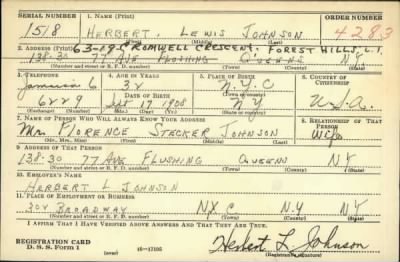 SERIAL NUMBER 1. NAME (Print) ORDER NUMBER
1518 HERBERT. LEWIS JOHNSON 4283
(First) (Middle) (Last)
63-19 CROMWELL CRESCENT. FOREST HILLS, L.I.
2. ADDRESS (Print)
138-30 77 AVE FLUSHING QUEENS NY
(Number and street or R. F. D. number) (Town) (County) (State)
3. TELEPHONE 4. AGE IN YEARS 5. PLACE OF BIRTH 6. COUNTRY OF CITIZENSHIP
Jamaica 6 32 N.Y.C
DATE OF BIRTH (Town or county)
6229 Sept 17 1908 NY U.S.A.
(Exchange) (Number) (Mo.) (Day) (Yr.) (State or country)
7. NAME OF PERSON WHO WILL ALWAYS KNOW YOUR ADDRESS 8. RELATIONSHIP OF THAT PERSON
Mrs FLORENCE STECKER JOHNSON Wife
(Mr., Mrs., Miss) (First) (Middle) (Last)
9. ADDRESS OF THAT PERSON
138-30 77 AVE FLUSHING QUEENS NY
(Number and street or R. F. D. number) (Town) (County) (State)
10. EMPLOYER'S NAME
HERBERT L JOHNSON
11. PLACE OF EMPLOYMENT OR BUSINESS
304 BROADWAY NYC N.Y NY
(Number and street or R. F. D. number) (Town) (County) (State)
I AFFIRM THAT I HAVE VERIFIED ABOVE ANSWERS AND THAT THEY ARE TRUE.
REGISTRATION CARD
D. S. S. FORM 1 (over) 16-17105 Herbert L Johnson
(Registrant's signature)